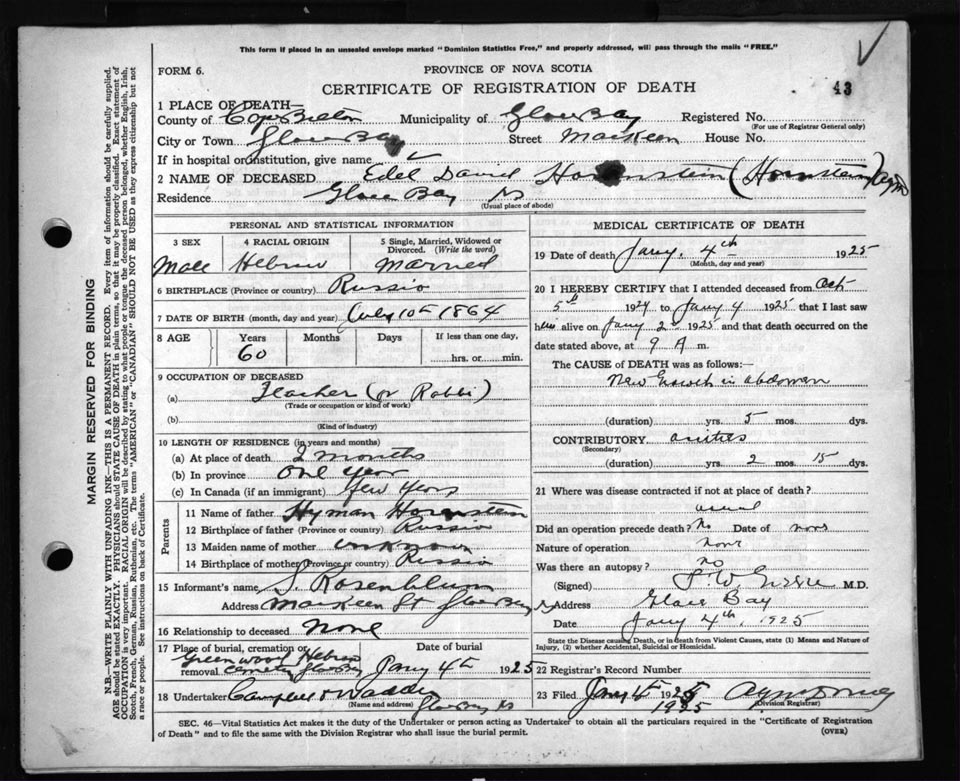 This form if placed in an unsealed envelope marked "Dominion Statistics Free," and properly addressed, will pass through the mails "FREE."
FORM 6.
PROVINCE OF NOVA SCOTIA
CERTIFICATE OF REGISTRATION OF DEATH
43
1 PLACE OF DEATH—
County of Cape Breton Municipality of Glace Bay Registered No.
(For use of Registrar General only)
City or Town Glace Bay Street MacKeen House No.
If in hospital or institution, give name
2 NAME OF DECEASED Edel David Hornstein (Hornstein)
Residence Glace Bay NS
(Usual place of abode)
PERSONAL AND STATISTICAL INFORMATION
3 SEX 4 RACIAL ORIGIN 5 Single, Married, Widowed or Divorced. (Write the word)
Male Hebrew Married
6 BIRTHPLACE (Province or country) Russia
7 DATE OF BIRTH (month, day and year) July 10th 1864
8 AGE Years Months Days If less than one day,
60 hrs. or min.
9 OCCUPATION OF DECEASED
(a) Teacher (or Rabbi)
(Trade or occupation or kind of work)
(b)
(Kind of industry)
10 LENGTH OF RESIDENCE (in years and months)
(a) At place of death 2 months
(b) In province One Year
(c) In Canada (if an immigrant) Few Years
Parents
11 Name of father Hyman Hornstein
12 Birthplace of father (Province or country) Russia
13 Maiden name of mother unknown
14 Birthplace of mother (Province or country) Russia
15 Informant's name S. Rosenblum
Address MacKeen St Glace Bay NS
16 Relationship to deceased None
17 Place of burial, cremation or removal Date of burial
Greenwood Hebrew Cemetery Glace Bay Jany 4th 1925
18 Undertaker Campbell & Madden
(Name and address) Glace Bay NS
MEDICAL CERTIFICATE OF DEATH
19 Date of death Jany. 4th 1925
(Month, day and year)
20 I HEREBY CERTIFY that I attended deceased from Oct
5th 1924 to Jany 4 1925 that I last saw
him alive on Jany 2 1925 and that death occurred on the
date stated above, at 9 A m.
The CAUSE OF DEATH was as follows:
New Growth in abdomen
(duration) yrs. 5 mos. dys.
CONTRIBUTORY ascites
(Secondary)
(duration) yrs. 2 mos. 15 dys.
21 Where was disease contracted if not at place of death?
Did an operation precede death? No Date of none
Nature of operation none
Was there an autopsy? no
(Signed) M.D.
Address Glace Bay
Date Jany 4th, 1925
State the Disease causing Death, or in death from Violent Causes, state (1) Means and Nature of
Injury, (2) whether Accidental, Suicidal or Homicidal.
22 Registrar's Record Number
23 Filed Jany 5 1925
1925
(Division Registrar)
SEC. 46—Vital Statistics Act makes it the duty of the Undertaker or person acting as Undertaker to obtain all the particulars required in the "Certificate of Registration
of Death" and to file the same with the Division Registrar who shall issue the burial permit.
(OVER)
MARGIN RESERVED FOR BINDING
N.B.—WRITE PLAINLY WITH UNFADING INK—THIS IS A PERMANENT RECORD. Every item of information should be carefully supplied.
AGE should be stated EXACTLY. PHYSICIANS should STATE CAUSE OF DEATH in plain terms, so that it may be properly classified. Exact statement of
OCCUPATION is very important. RACIAL ORIGIN will be described by stating to what people or tongue the deceased person belonged, whether English, Irish,
Scotch, French, German, Russian, Ruthenian, etc. The terms "AMERICAN" or "CANADIAN" SHOULD NOT BE USED as they express citizenship but not
a race or people. See instructions on back of Certificate.